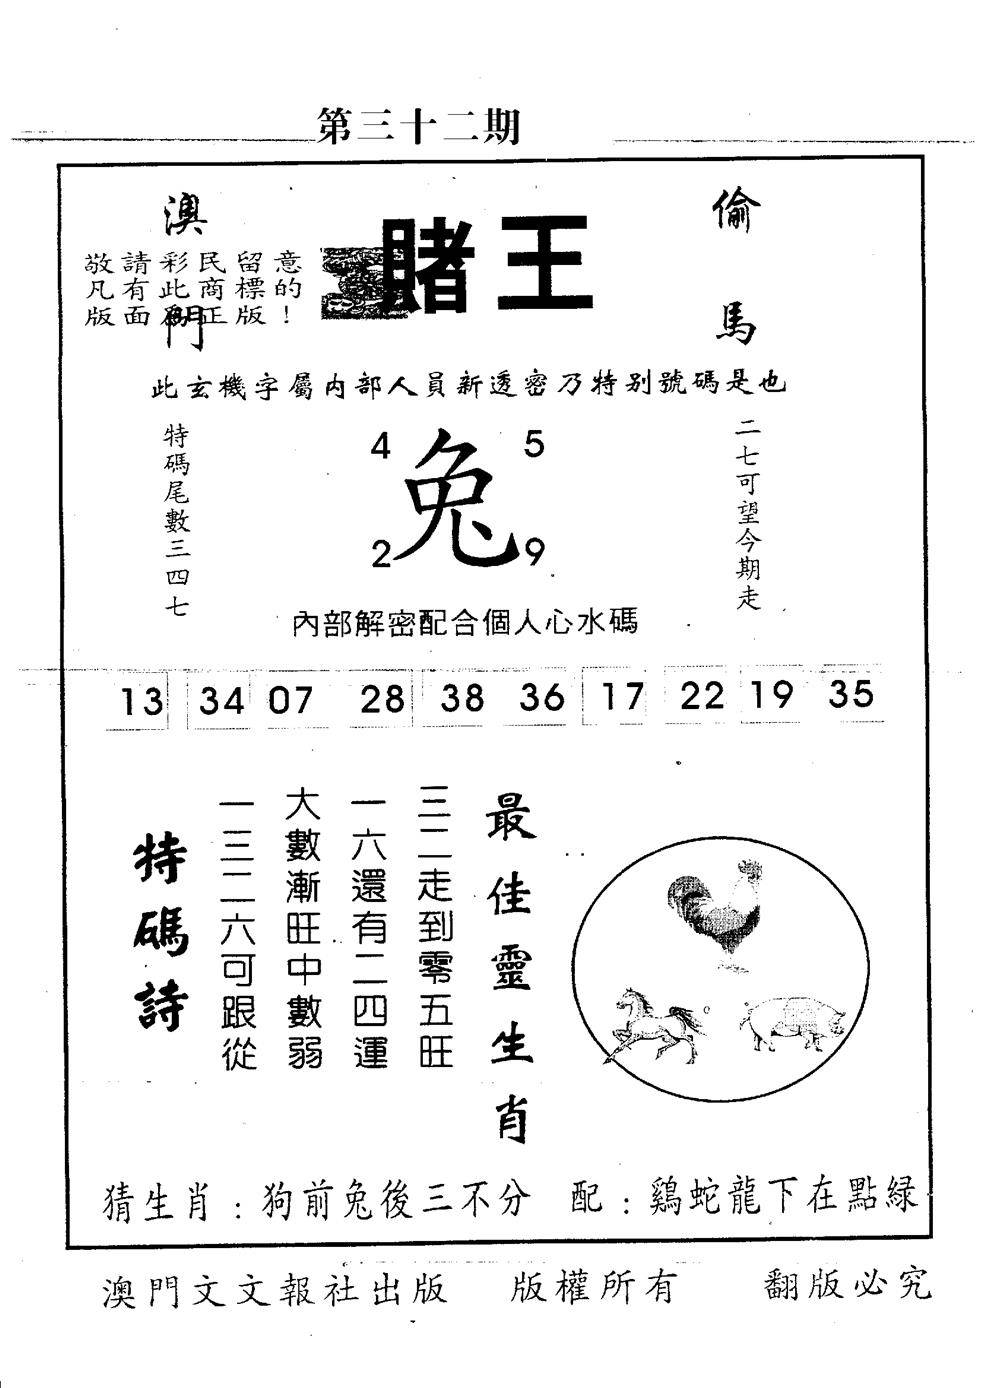 第三十二期
澳門
賭王
偷馬
敬請彩民留意
凡有此商標的
版面為正版！
此玄機字屬内部人員新透密乃特别號碼是也
特碼尾數三四七
4 5
兔
2 9
二七可望今期走
內部解密配合個人心水碼
13 34 07 28 38 36 17 22 19 35
最佳靈生肖
三二走到零五旺
一六還有二四運
大數漸旺中數弱
一三二六可跟從
特碼詩
猜生肖：狗前兔後三不分 配：鷄蛇龍下在點緑
澳門文文報社出版 版權所有 翻版必究